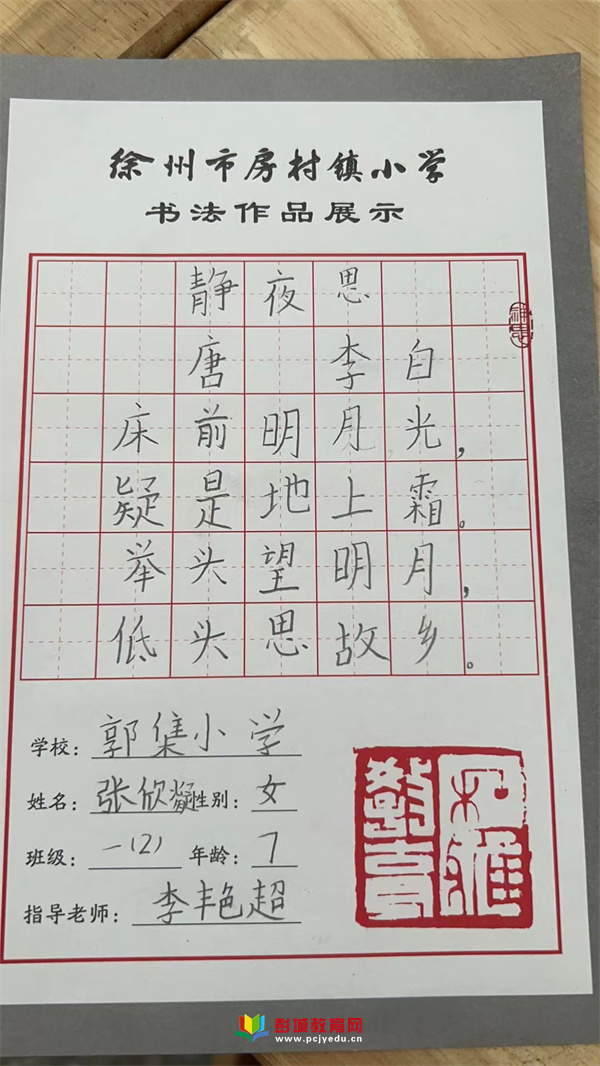 徐州市房村镇小学
书法作品展示
静夜思
唐 李白
床前明月光，
疑是地上霜。
举头望明月，
低头思故乡。
学校：郭集小学
姓名：张欣凝 性别：女
班级：一（2） 年龄：7
指导老师：李艳超
彭城教育网
www.pcjyedu.cn